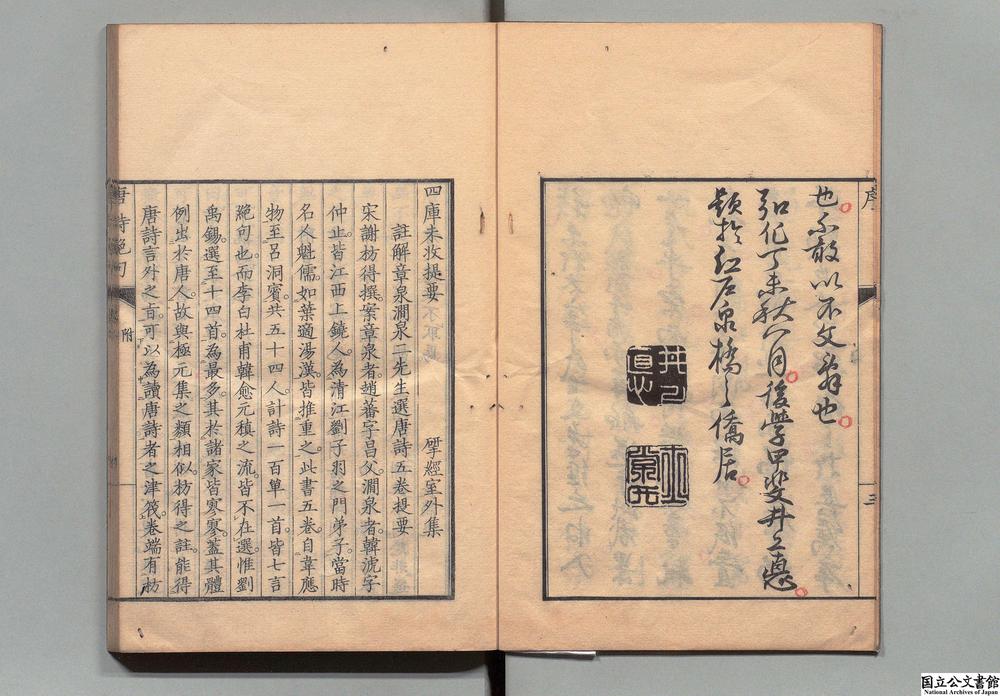 序
也不敢以不文辭也
弘化丁未秋八月後學甲斐井上悳
題於江戸泉橋之僑居
井上悳
三
四庫未收提要
揅經室外集
註解章泉澗泉二先生選唐詩五卷提要
宋謝枋得撰案章泉者趙蕃字昌父澗泉者韓淲字
仲止皆江西上饒人為清江劉子羽之門弟子當時
名人魁儒如葉適湯漢皆推重之此書五卷自韋應
物至呂洞賓共五十四人計詩一百單一首皆七言
絕句也而李白杜甫韓愈元稹之流皆不在選惟劉
禹錫選至十四首為最多其於諸家皆寥寥蓋其體
例出於唐人故與極元集之類相似枋得之註能得
唐詩言外之旨可以為讀唐詩者之津筏卷端有枋
唐詩絕句
附
国立公文書館
National Archives of Japan